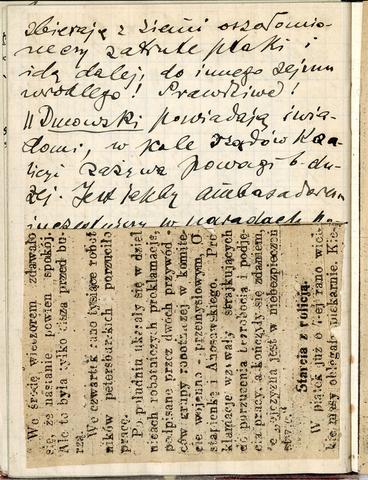 zbierają z ziemi oszołomio-
ne czy zatrute ptaki i
idą dalej, do innego sejmu
wrodlego! Prawdziwe!
"Dmowski powiadają świa-
domi, w kole rządów Koa-
licji zażywa powagi b. du-
żej. Jest jakby ambasadorem
w naradach
We środę wieczorem zdawało
się, że nastanie pewien spokój.
Ale to była tylko cisza przed bu-
rzą.
We czwartek rano tysiące robot-
ników petersburskich porzuciło
pracę.
Po południu ukazały się w dziel-
nicach robotniczych proklamacje,
podpisane przez dwóch przywód-
ców grupy robotniczej w komite-
cie wojenno - przemysłowym, O-
stapienkę i Anosowskiego. Pro-
klamacje wzywały strajkujących
do porzucenia bezrobocia i podję-
cia pracy, a kończyły się zdaniem,
że „ojczyzna jest w niebezpieczeń-
stwie".
Starcia z policją.
W piątek już o 6-ej rano wiel-
kie masy oblegały piekarnie. Kie-